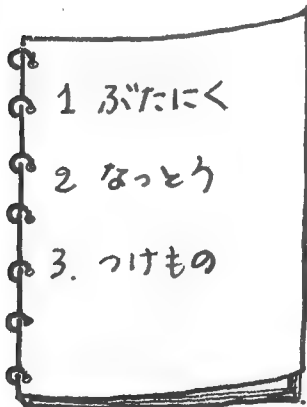 1 ぶたにく
2 なっとう
3. つけもの